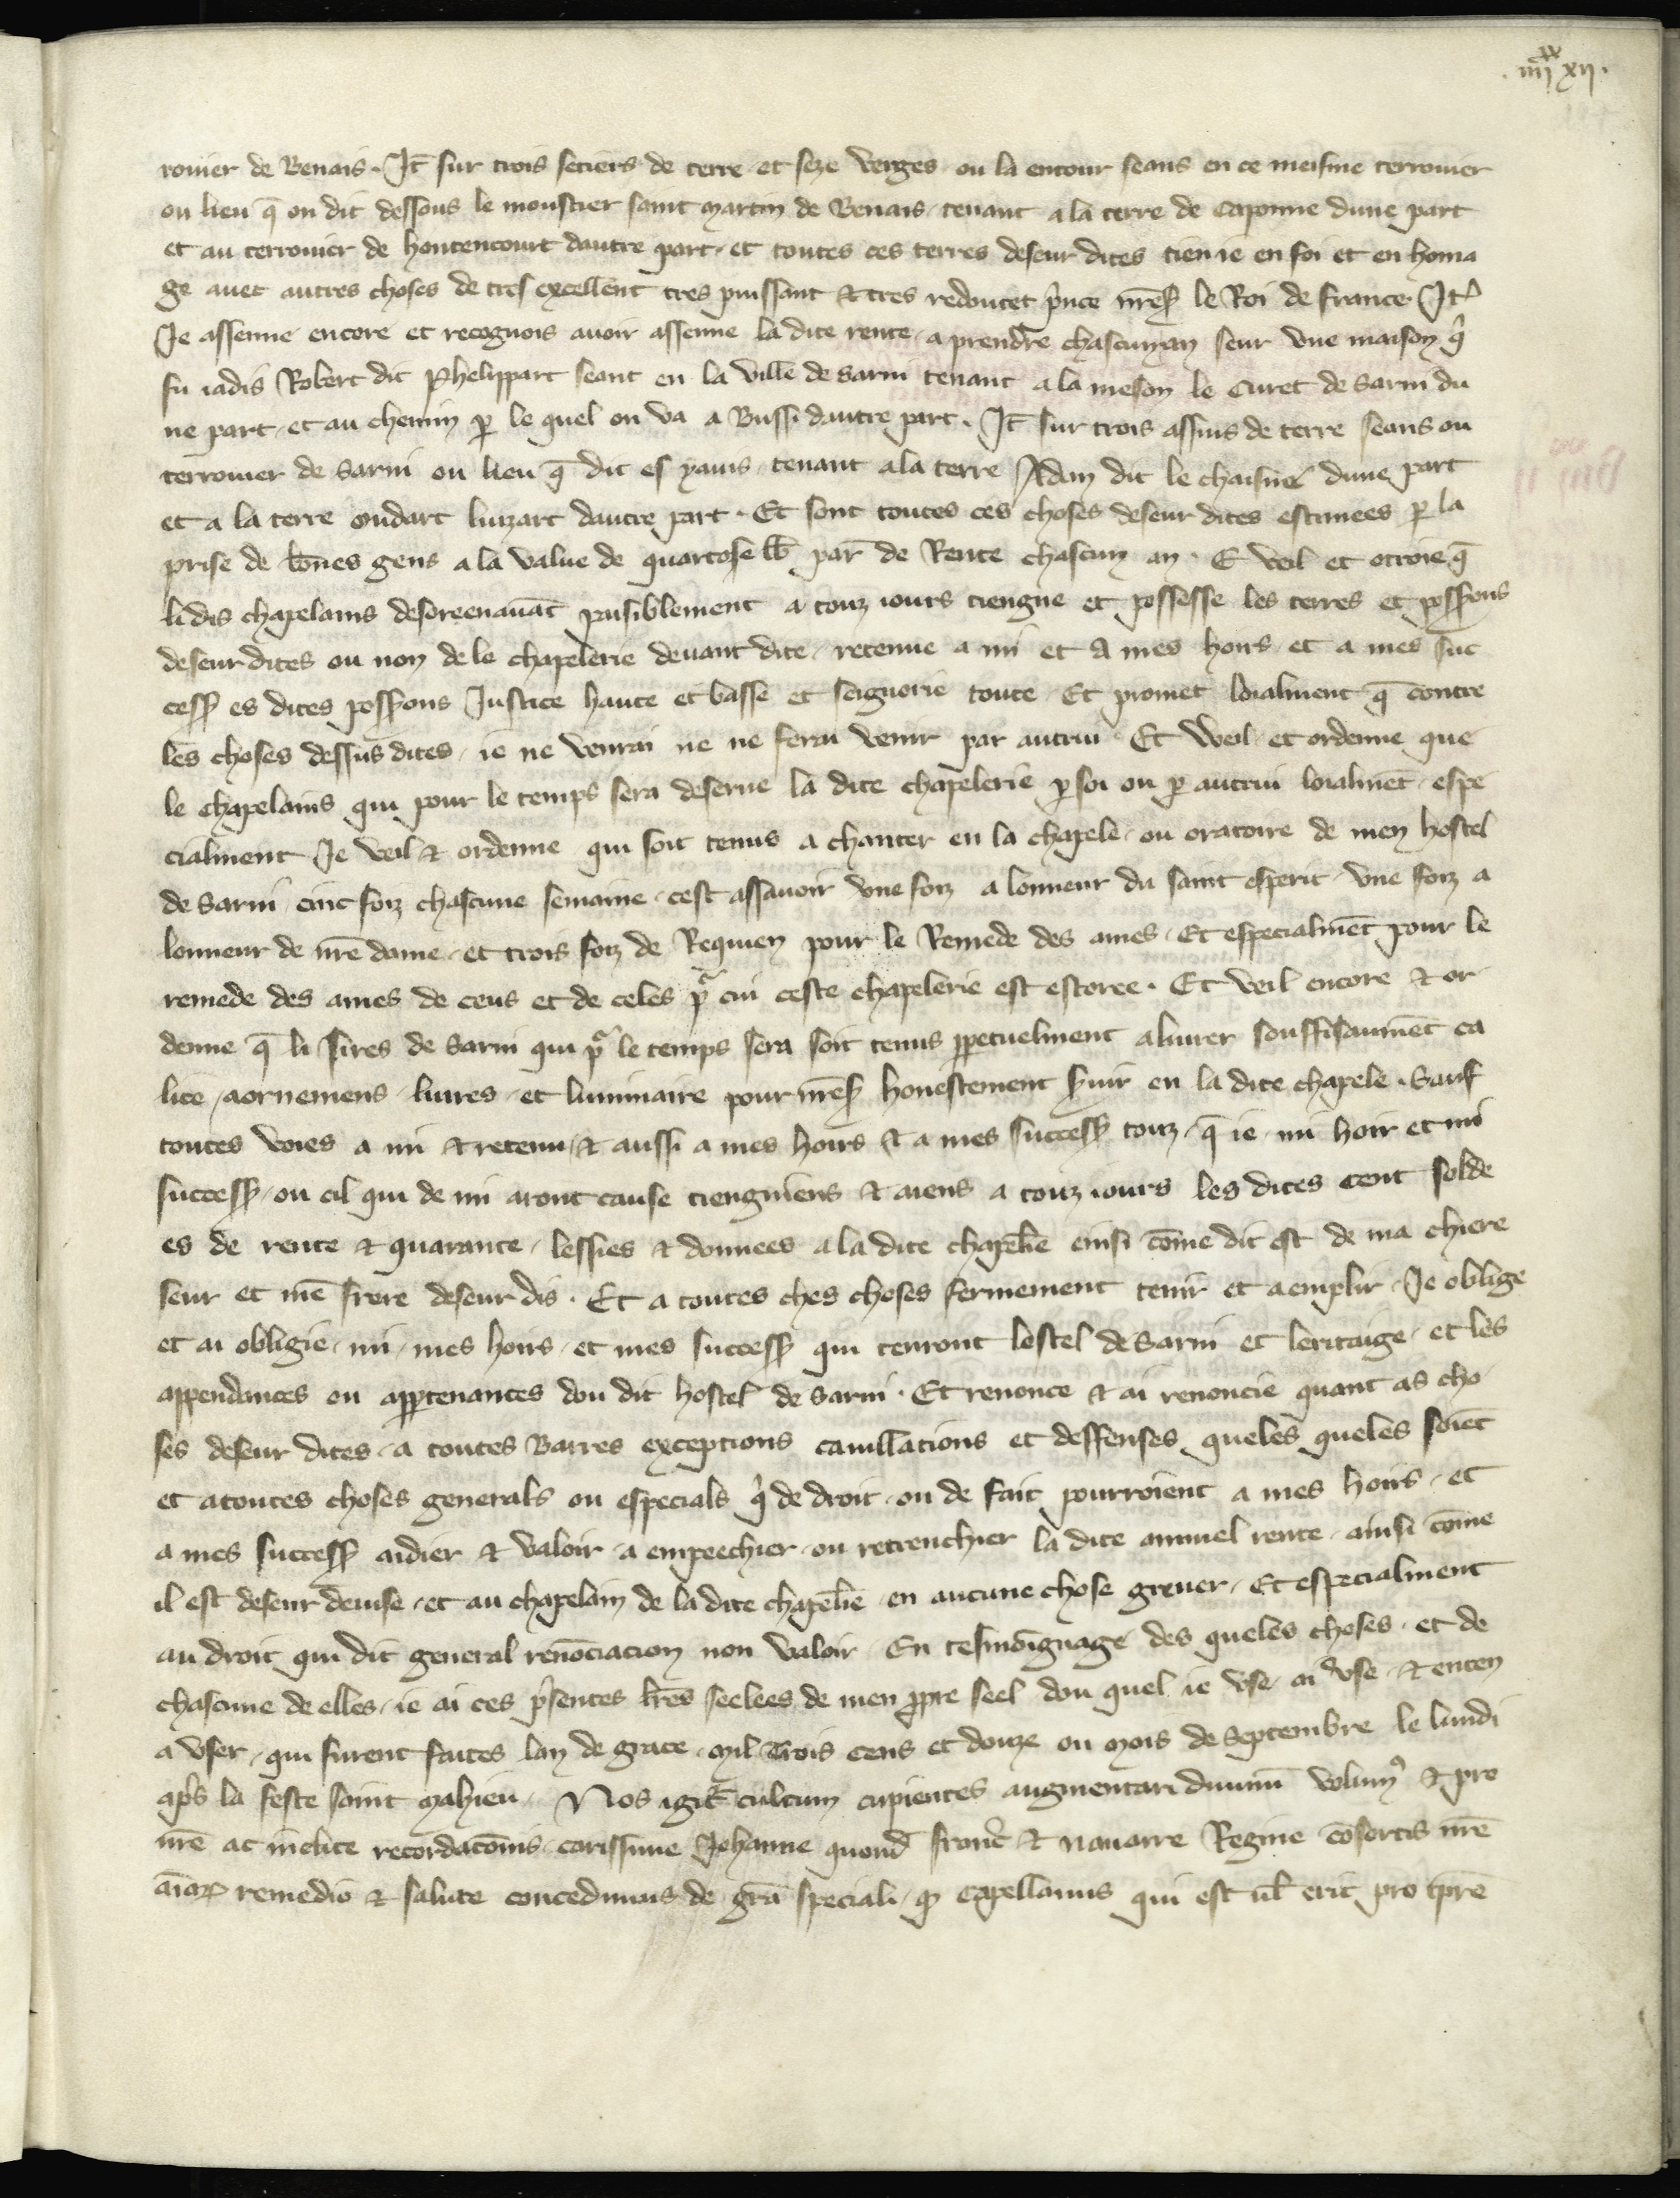 . iiii^xx xii .
rouier de Benais . It̄ sur trois setiers de terre et seze verges ou la entour seans en ce meisme terrouier
ou lieu q̄ on dit dessous le moustier saint martin de Benais tenant a la terre de Caponne dune part
et au terrouier de hontencourt dautre part et toutes ces terres deseur dites tien ie en foi et en homa
ge auec autres choses de tres excellent tres puissant & tres redoutet p̄nce mꝰs le Roi de france . It̄
Je assenne encore et recognois auoir assenne la dite rente a prendre chascun an seur vne maison q̇
fu iadis Robert dit Phelippart seant en la ville de sarni tenant a la meson le Curet de sarni du
ne part et au chemin ꝑ le quel on va a Bussi dautre part . It̄ sur trois assins de terre seans ou
terrouier de sarni ou lieu q̄ dit es yauis tenant a la terre Adan dit le chaisne dune part
et a la terre oudart luizart dautre part . Et sont toutes ces choses deseur dites estimees ꝑ la
prise de bōnes gens a la value de quartose lb̄ par̄ de Rente chascun an . E veil et otroie q̄
li dis chapelains desoreenauāt paisiblement a touz iours tiengne et possesse les terres et possꝭons
deseur dites ou non de le chapelerie deuant dite retenue a mi et a mes hoirs et a mes suc
cessꝭ es dites possꝭons Justice haute et basse et seignorie toute Et promet loialment q̄ contre
les choses dessus dites ie ne venrai ne ne ferai venir par autrui Et Weil et ordenne que
le chapelains qui pour le temps sera deserue la dite chapelerie ꝑ soi ou ꝑ autrui loialmēt espe
cialment Je veil & ordenne qui soit tenus a chanter en la chapele ou oratoire de men hostel
de sarni cinc foiz chascune semaine cest assauoir vne foiz a lonneur du saint esperit vne foiz a
lonneur de nrē dame et trois foiz de Requien pour le Remede des ames Et especialmēt pour le
remede des ames de ceus et de celes pͬ cui ceste chapelerie est estoree . Et veil encore & or
denne q̄ li sires de sarni qui pͬ le temps sera soit tenus ꝑpetuelment a liurer souffisaumēt ca
lice aornemens liures et luminaire pour mēsꝭ honestement sꝰuir en la dite chapele . Sauf
toutes voies a mi & retenu & aussi a mes hoirs & a mes successꝭ touz q̄ ie mi hoir et mi
successꝭ ou cil qui de mi aront cause tiengniens & aiens a touz iours les dites cent solde
es de rente & quarante lessies & donnees a la dite chapelr̄ie einsi cōme dit est de ma chiere
seur et mē frere deseur dis . Et a toutes ches choses fermement tenir et aemplir Je oblige
et ai obligie mi mes hoirs et mes successꝭ qui tenront lestel de sarni et leritaige et les
appendances ou apꝑtenances dou dit hostel de sarni . Et renonce & ai renoncie quant as cho
ses deseur dites a toutes Barres exceptions cauillations et deffenses queles queles soiēt
et a toutes choses generals ou especials q̇ de droit ou de fait pourroient a mes hoirs et
a mes successꝭ aidier & valoir a empeechier ou retrenchier la dite annuel rente ainsi cōme
il est deseur deuise et au chapelain de la dite chapelr̄ie en aucune chose greuer Et especialment
au droit qui dit general renōciacion non valoir En tesmoignage des queles choses et de
chascune de elles ie ai ces p̄sentes lrēs seelees de men ꝓpre seel dou quel ie vse ai vse & enten
a vser qui furent faites lan de grace mil trois cens et douze ou mois de septembre le lundi
apꝭs la feste saint mahieu Nos igit̄ cultum cupientes augmentari diuinū volumꝰ & pro
nrē ac inclite recordacōnis carissime Jehanne quond̄ franc̄ & nauarre Regine cōsortis nrē
aīaꝝ remedio & salute concedimus de grā speciali ꝙ capellanus qui est ul̄ erit pro tp̄re